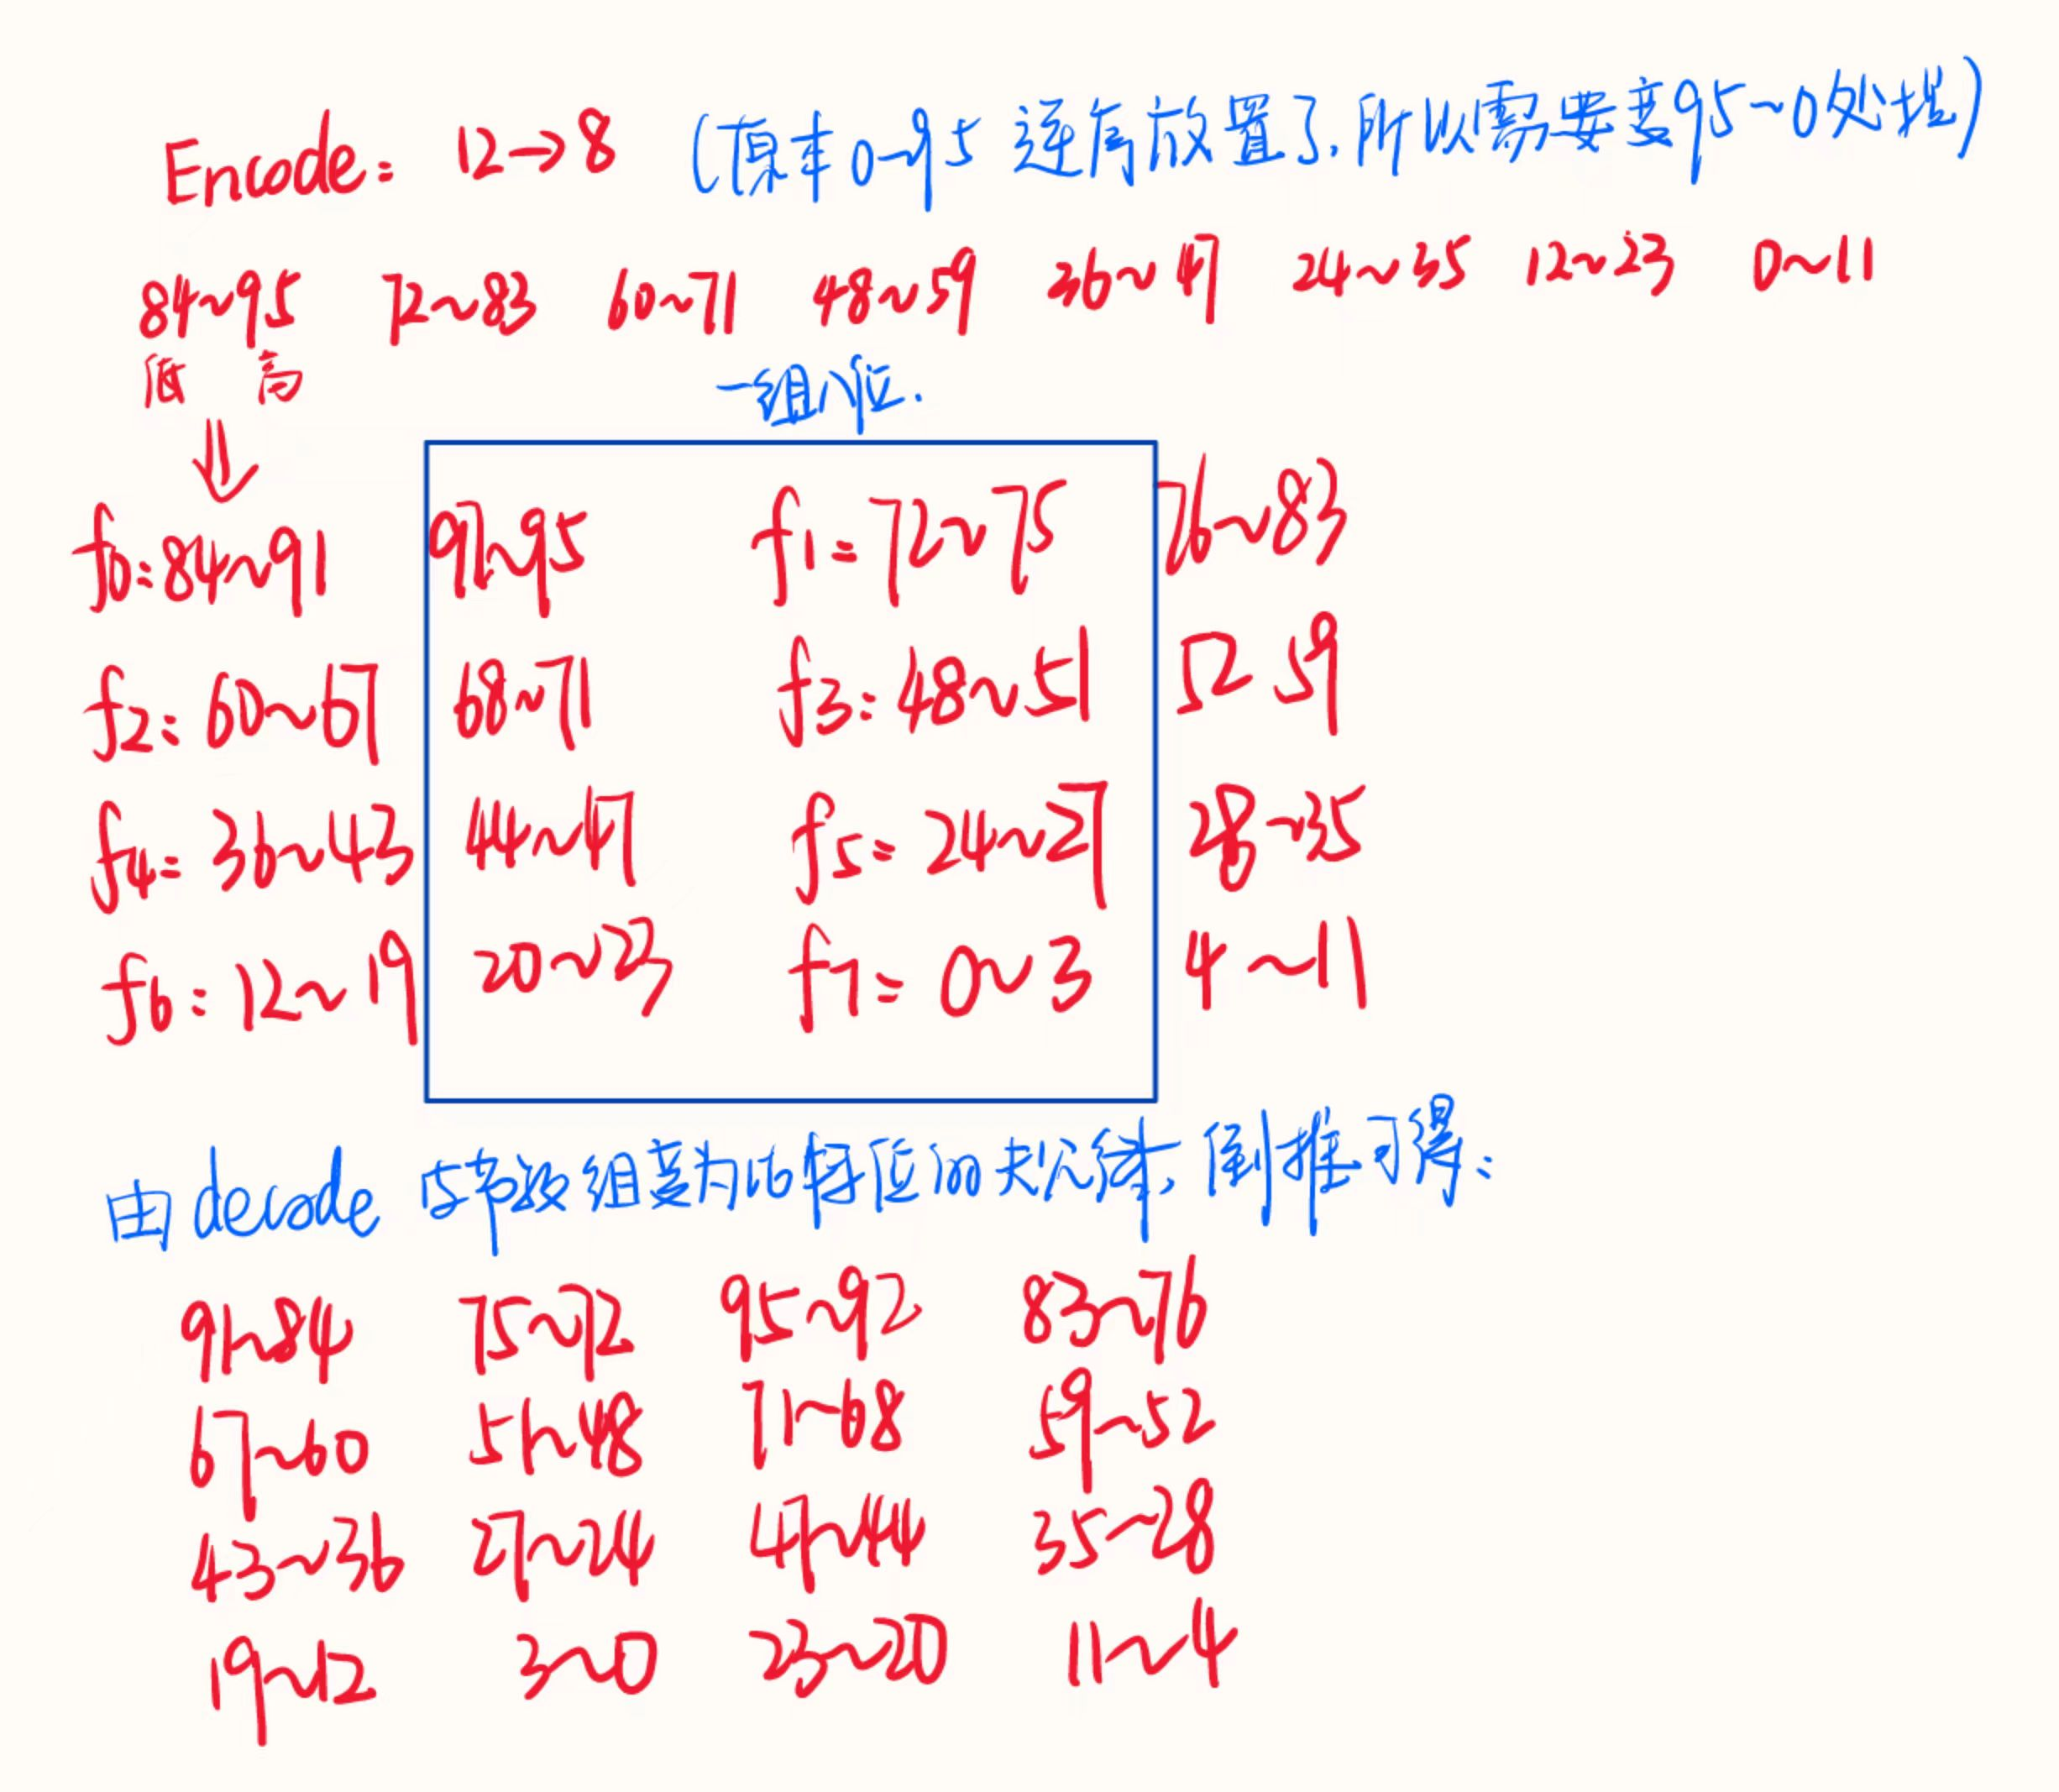 Encode: 12→8 (原本0~95 逆序放置了,所以需要变95~0处理)
84~95 72~83 60~71 48~59 36~47 24~35 12~23 0~11
低 高
一组八位.
f0:84~91 92~95 f1=72~75 76~83
f2:60~67 68~71 f3:48~51 52 59
f4=36~43 44~47 f5=24~27 28~35
f6:12~19 20~23 f7=0~3 4~11
由decode 字节数组变为比特位的关系,倒推可得:
91~84 75~72 95~92 83~76
67~60 51~48 71~68 59~52
43~36 27~24 47~44 35~28
19~12 3~0 23~20 11~4